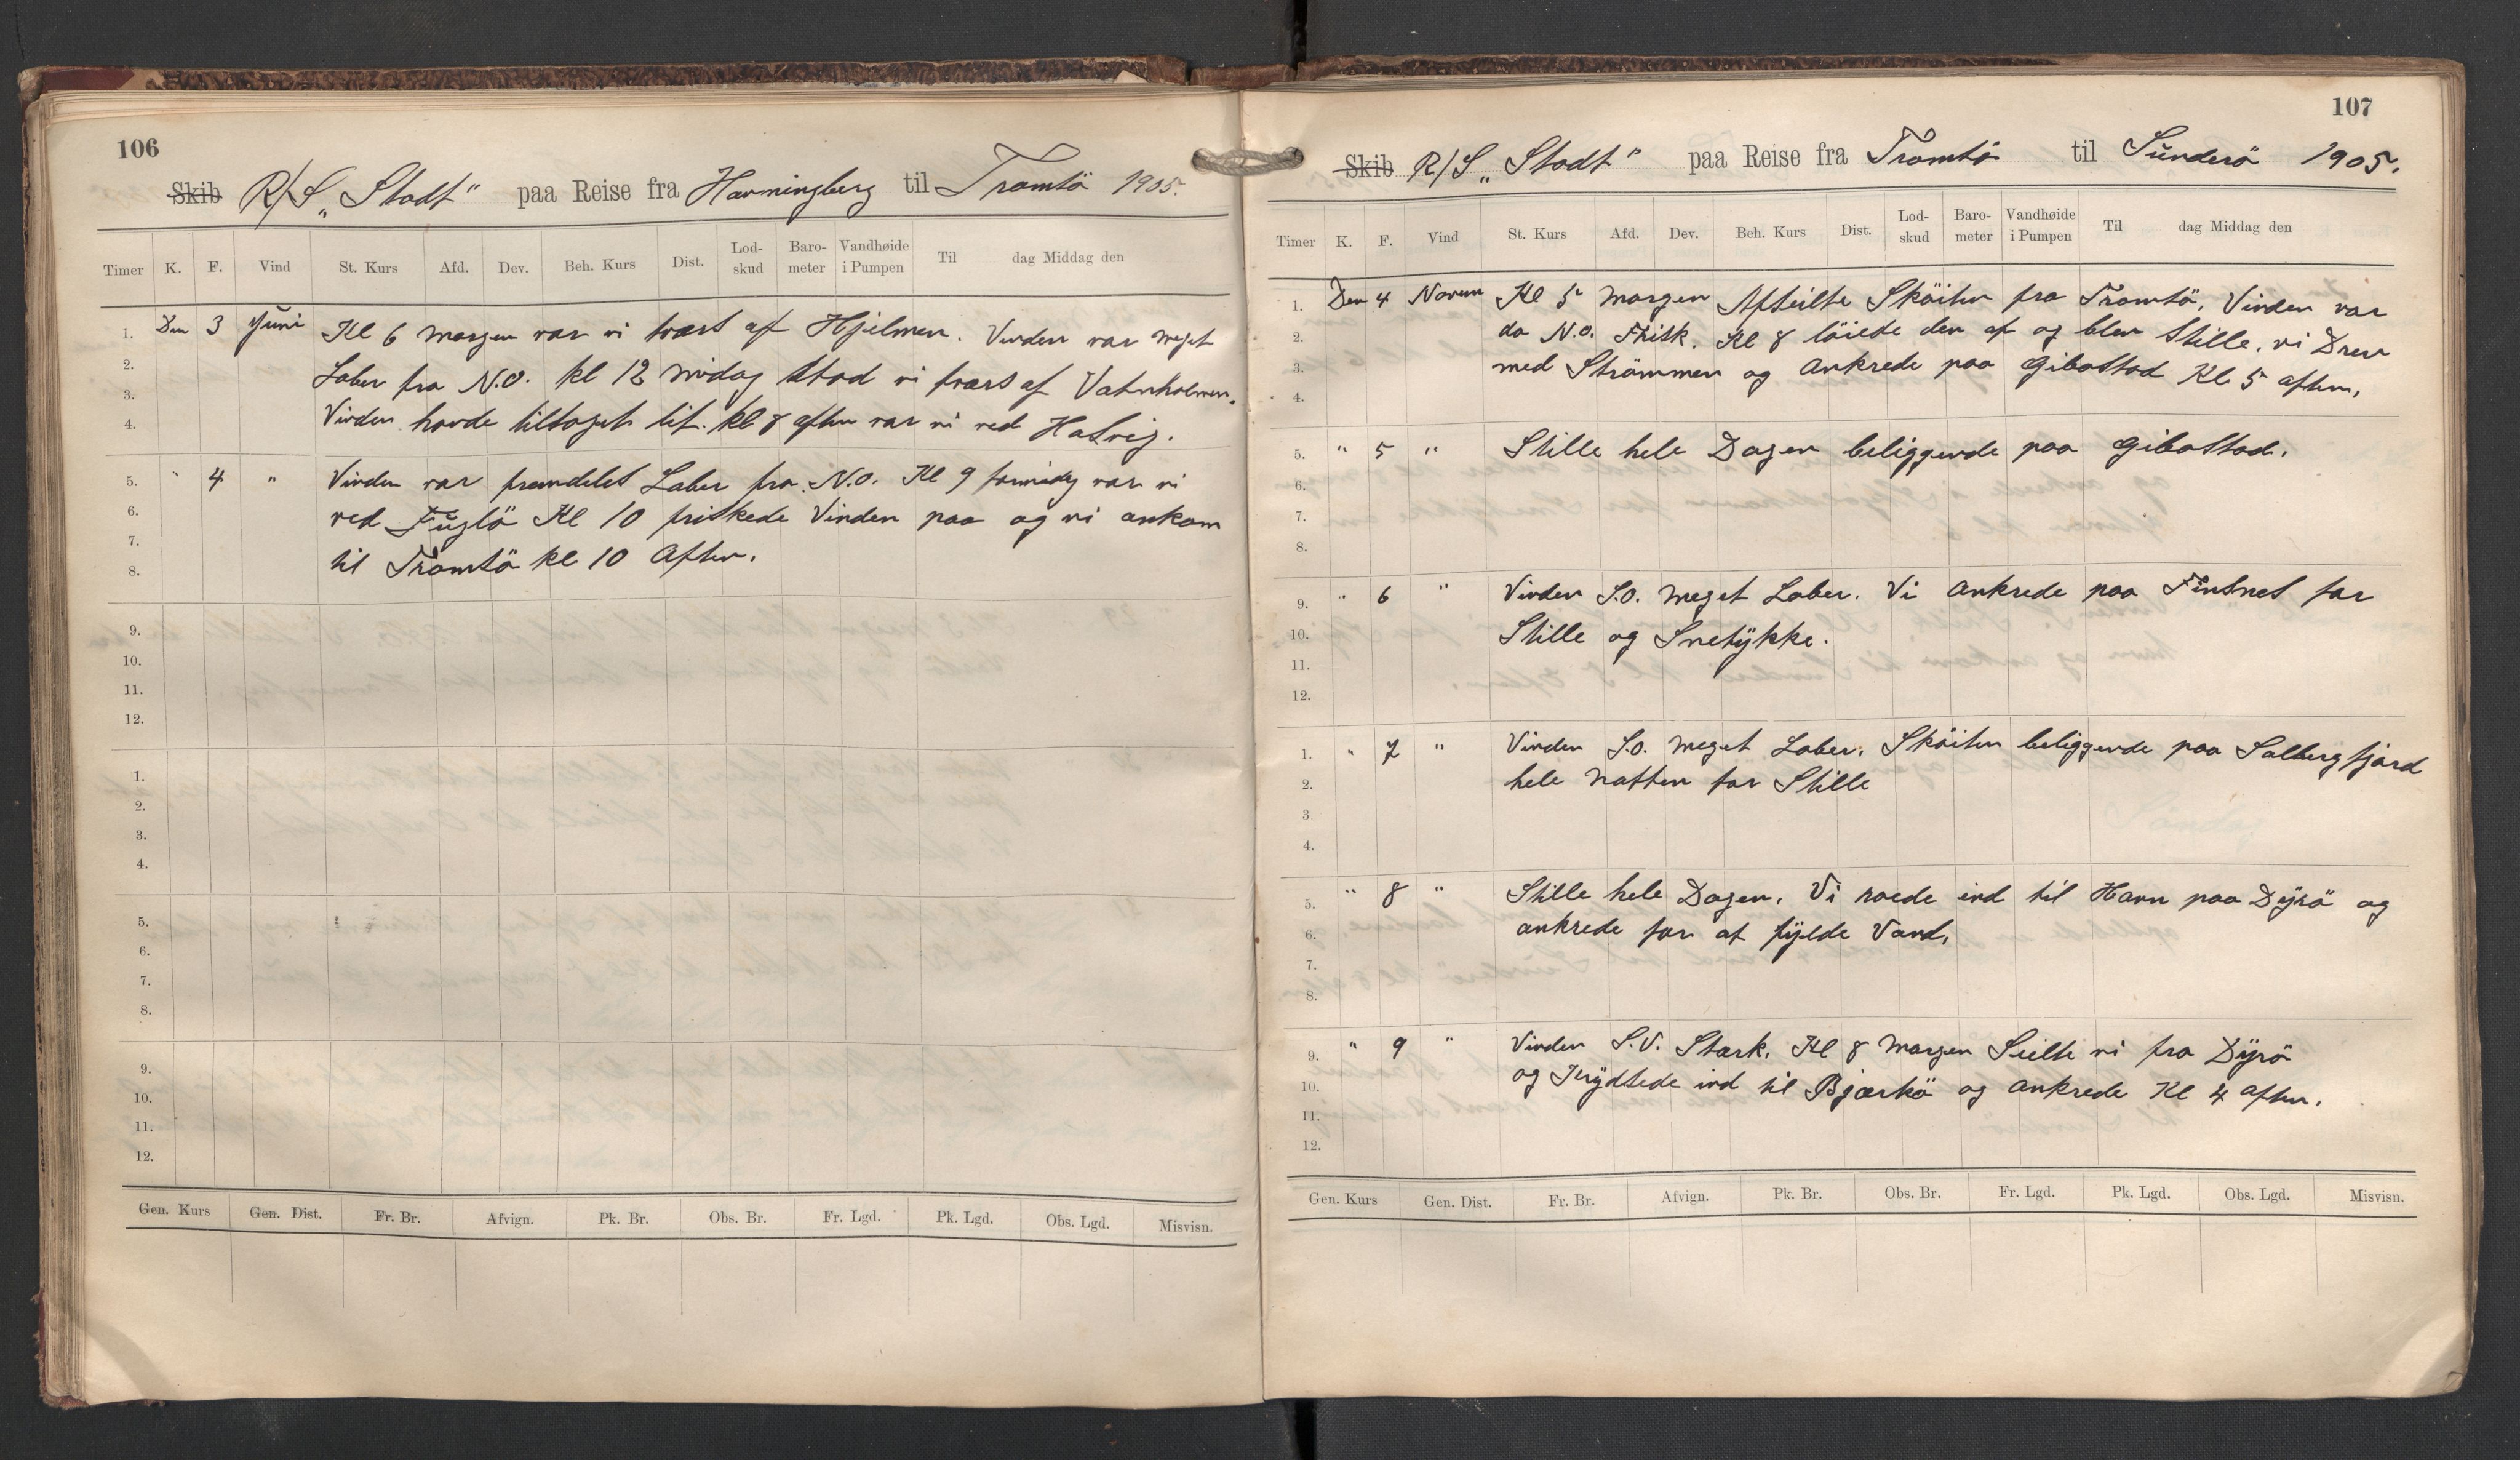 106
Skib R/S „Stadt" paa Reise fra Havningberg til Tromsö 1905.
Timer K. F. Vind St. Kurs Afd. Dev. Beh. Kurs Dist. Lod-skud Baro-meter Vandhøide i Pumpen Til dag Middag den
1. Den 3 Juni Kl 6 morgen var vi tvært af Hjelmen. Vinden var meget
2. Laber fra N.O. kl 12 midag stod vi tvers af Vatnholmen.
3.
4. Vinden havde tiltaget lit. kl 8 aften var vi ved Hasvig.
5. " 4 " Vinden var fremdeles Laber fra N.O. Kl 9 formidag var vi
6. ved Fuglö Kl 10 friskede Vinden paa og vi ankom
7.
8. til Tromsö kl 10 Aften.
9.
10.
11.
12.
1.
2.
3.
4.
5.
6.
7.
8.
9.
10.
11.
12.
Gen. Kurs Gen. Dist. Fr. Br. Afvign. Pk. Br. Obs. Br. Fr. Lgd. Pk. Lgd. Obs. Lgd. Misvisn.
107
Skib R/S „Stadt" paa Reise fra Tromsö til Sunderö 1905.
Timer K. F. Vind St. Kurs Afd. Dev. Beh. Kurs Dist. Lod-skud Baro-meter Vandhøide i Pumpen Til dag Middag den
1. Den 4 Novem Kl 5 morgen Afseilte Sköiten fra Tromsö, Vinden var
2. da N.O. Frisk. Kl 8 löiede den af og blev Stille. vi Drev
3. med Strömmen og ankrede paa Gibostad Kl 5 aften,
4.
5. " 5 " Stille hele Dagen beliggende paa Gibostad.
6.
7.
8.
9. " 6 " Vinden S.O. meget Laber. Vi ankrede paa Finsnes for
10. Stille og Snetykke.
11.
12.
1. " 7 " Vinden S.O. meget Laber. Sköiten beliggende paa Salbergfjord
2. hele natten for Stille
3
4.
5. " 8 " Stille hele Dagen. Vi roede ind til Havn paa Dyrö og
6. ankrede for at fylde Vand,
7.
8.
9. " 9 " Vinden S.V. Stærk. Kl 8 morgen Seilte vi fra Dyrö
10. og Krydsede ind til Bjærkö og ankrede Kl 4 aften.
11.
12.
Gen. Kurs Gen. Dist. Fr. Br. Afvign. Pk. Br. Obs. Br. Fr. Lgd. Pk. Lgd. Obs. Lgd. Misvisn.